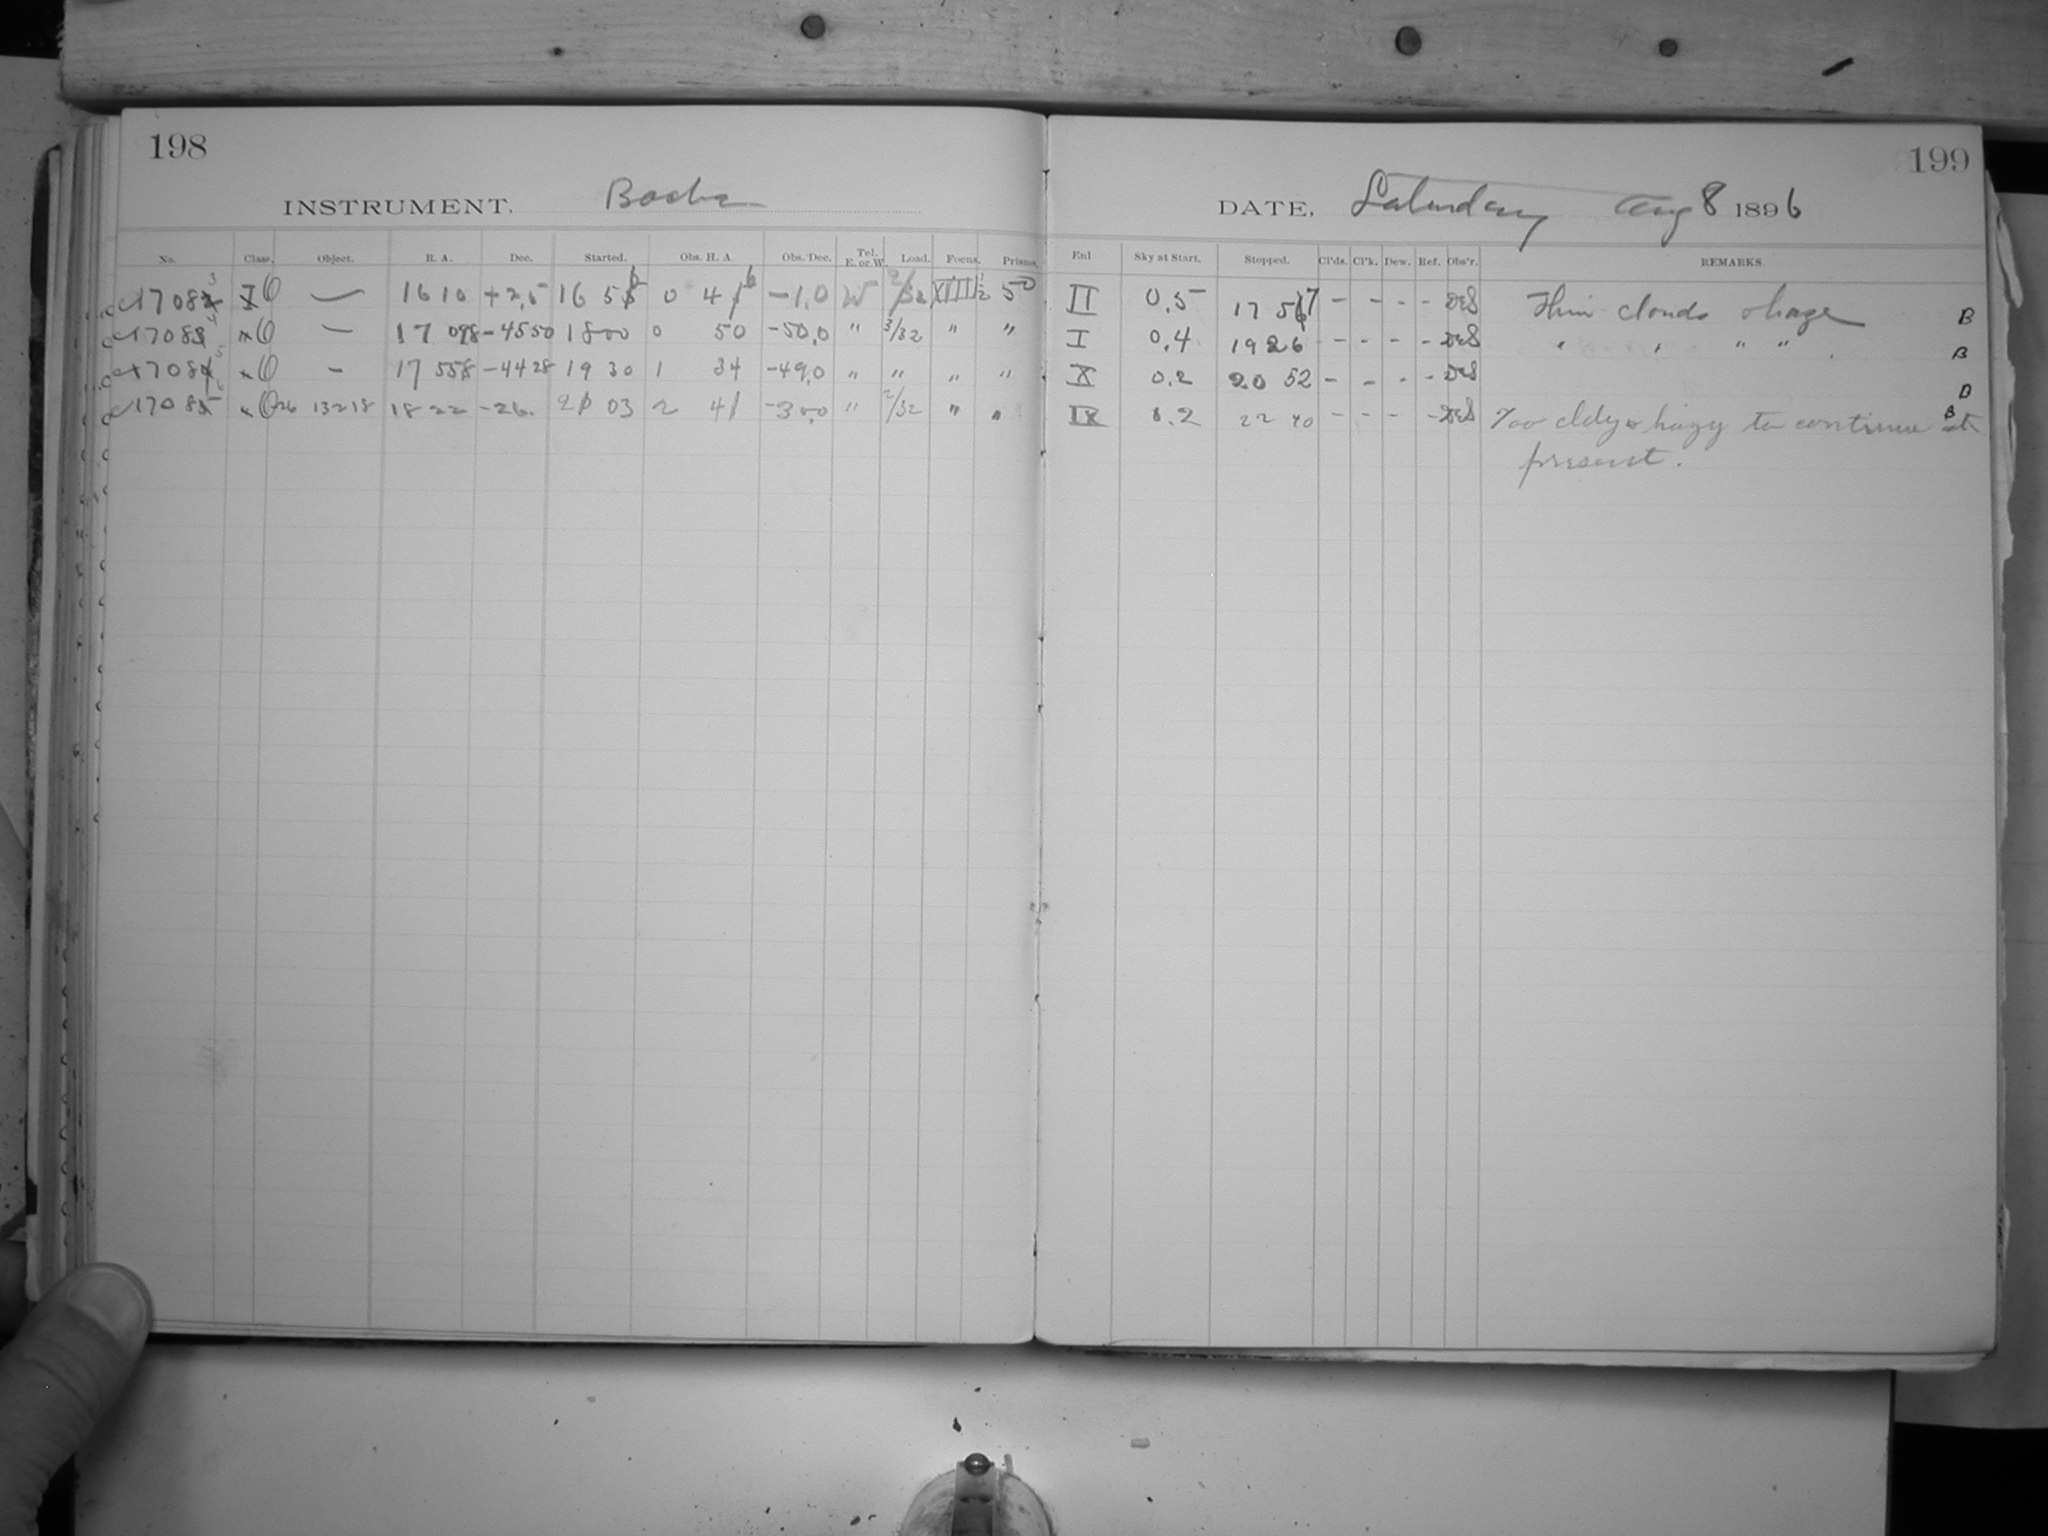 198
INSTRUMENT. Bache
No. Class. Object. R. A. Dec. Started. Obs. H. A. Obs. Dec. Tel. E. or W. Load. Focus. Prisms.
17083 X 6 — 16 10 +2,5 16 56 0 46 -1,0 W 2/32 XIII 1/2 50
17084 " 6 — 17 098 -4550 18 00 0 50 -50,0 " 3/32 " "
17085 " 6 - 17 558 -4428 19 30 1 34 -49,0 " " " "
1708 " 6 26 13218 18 22 -26. 21 03 2 41 -30,0 " 2/32 " "
199
DATE, Saturday Aug 8 1896
Enl Sky at Start. Stopped. Cl'ds. Cl'k. Dew. Ref. Obs'r. REMARKS.
II 0.5 17 57 - - - - DES Thin clouds & haze B
I 0.4 19 26 - - - - DES " " " " B
X 0.2 20 52 - - - - DES B
IX 0.2 22 40 - - - - DES Too cldy & hazy to continue at B
present.